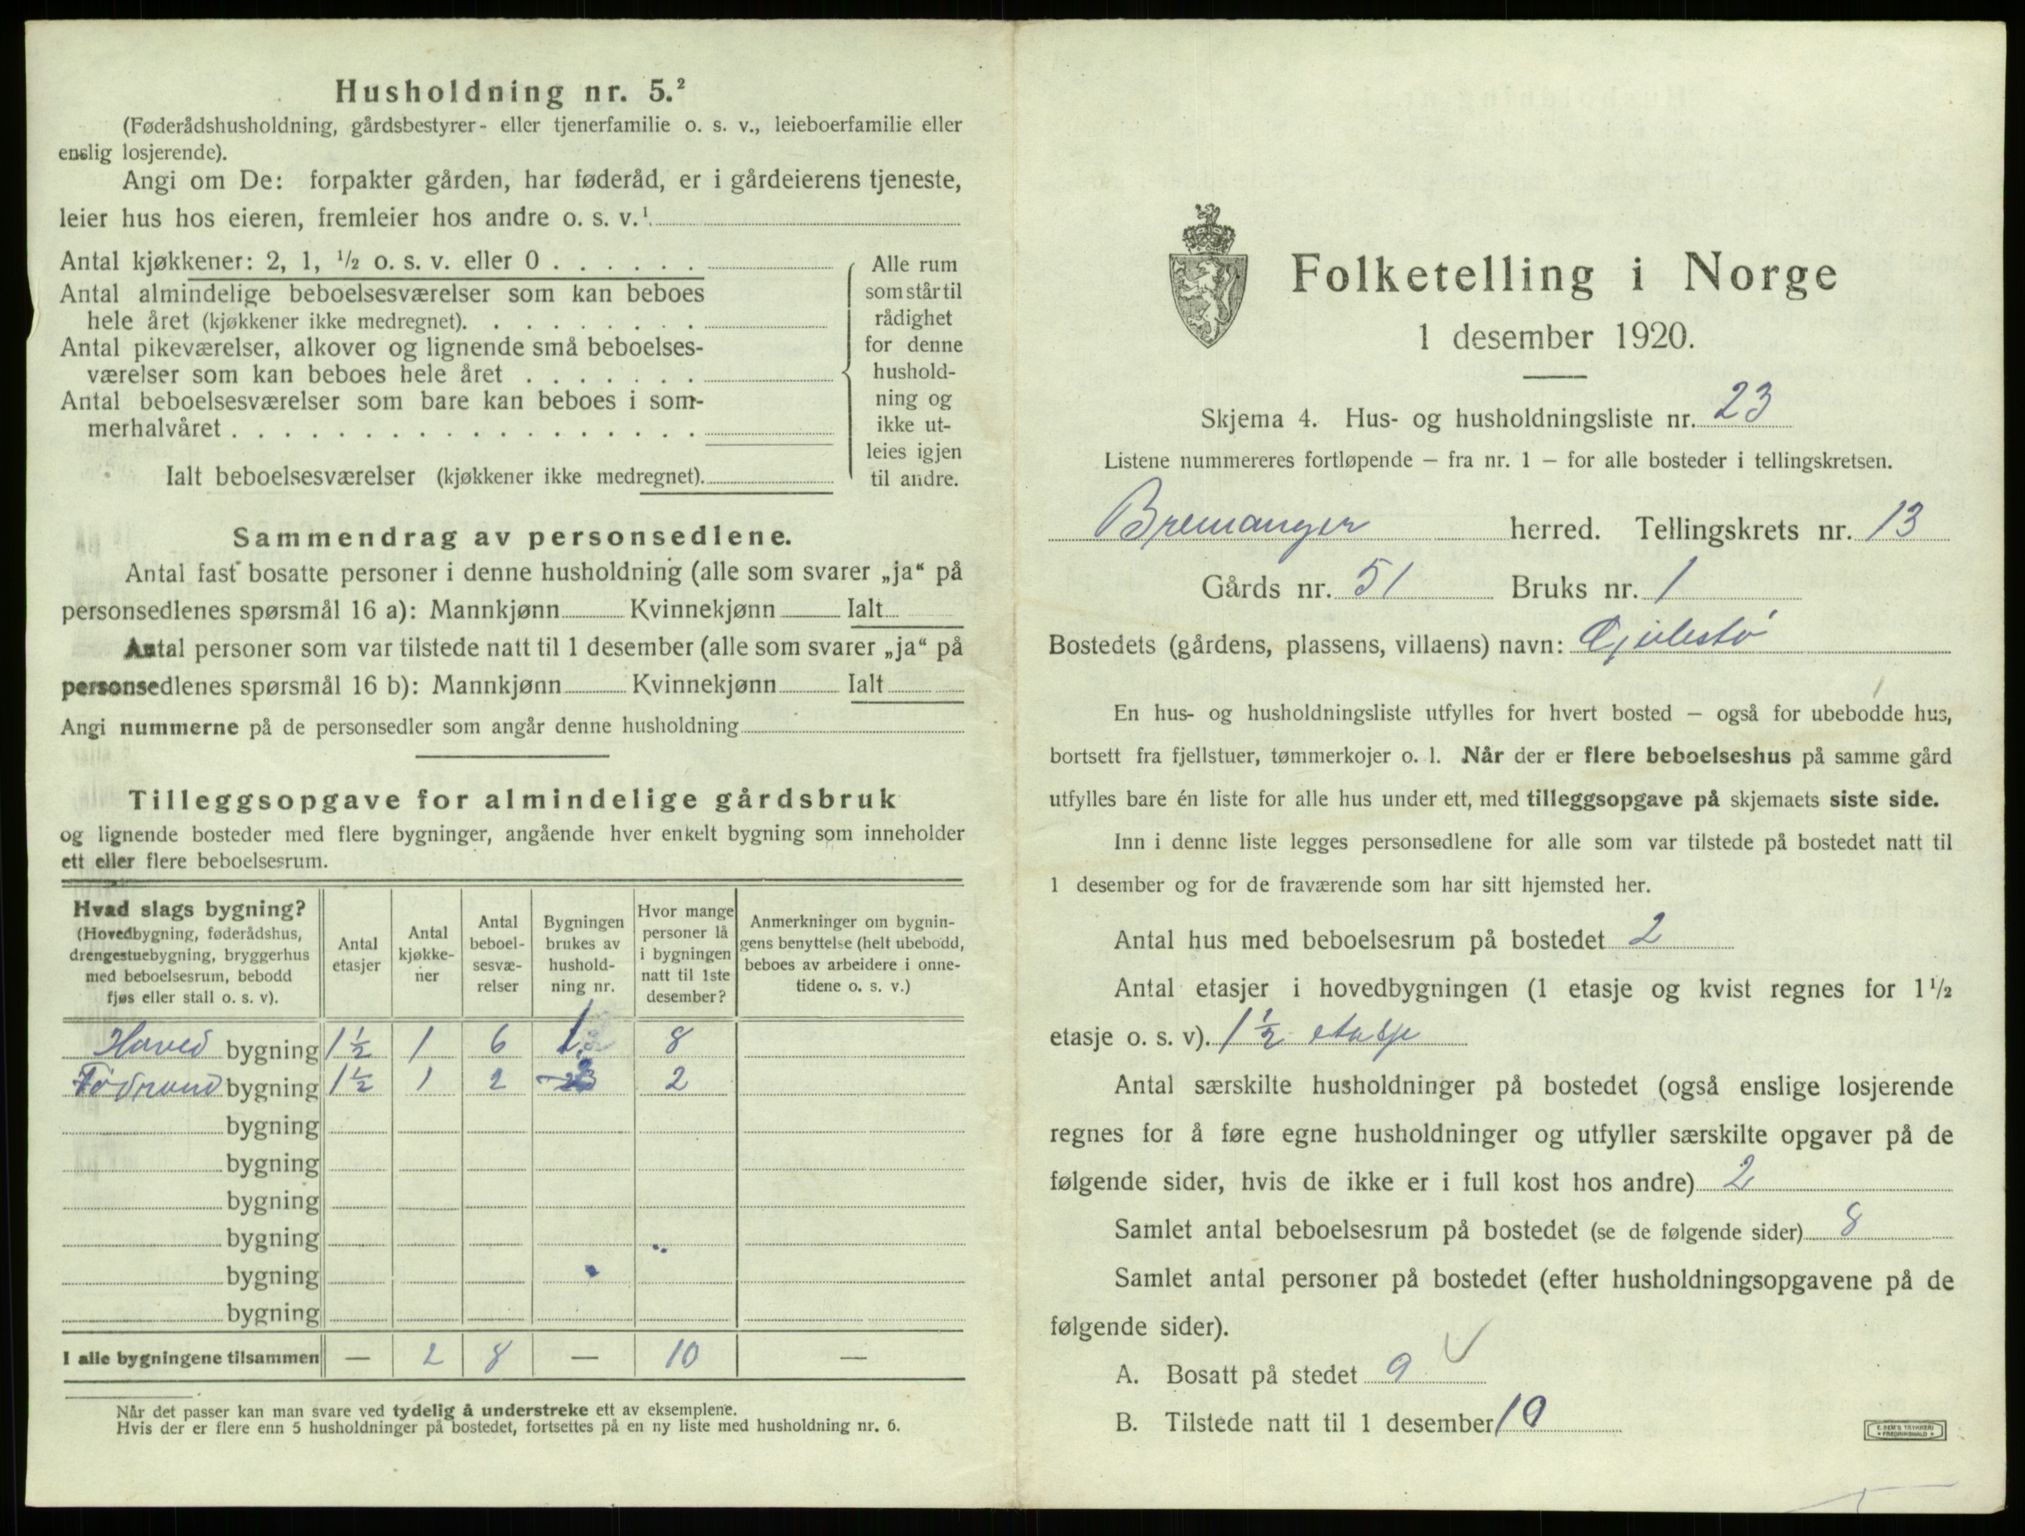 Husholdning nr. 5.²
(Føderådshusholdning, gårdsbestyrer- eller tjenerfamilie o. s. v., leieboerfamilie eller
enslig losjerende).
Angi om De: forpakter gården, har føderåd, er i gårdeierens tjeneste,
leier hus hos eieren, fremleier hos andre o. s. v.¹
Antal kjøkkener: 2, 1, ½ o. s. v. eller 0 . . . . . .
Antal almindelige beboelsesværelser som kan beboes
hele året (kjøkkener ikke medregnet). . . . . . . . .
Antal pikeværelser, alkover og lignende små beboelses-
værelser som kan beboes hele året . . . . . . .
Antal beboelsesværelser som bare kan beboes i som-
merhalvåret . . . . . . . . . . . . . . . . . .
Ialt beboelsesværelser (kjøkkener ikke medregnet).
Alle rum
som står til
rådighet
for denne
hushold-
ning og
ikke ut-
leies igjen
til andre.
Sammendrag av personsedlene.
Antal fast bosatte personer i denne husholdning (alle som svarer „ja“ på
personsedlenes spørsmål 16 a): Mannkjønn Kvinnekjønn Ialt
Antal personer som var tilstede natt til 1 desember (alle som svarer „ja“ på
personsedlenes spørsmål 16 b): Mannkjønn Kvinnekjønn Ialt
Angi nummerne på de personsedler som angår denne husholdning
Tilleggsopgave for almindelige gårdsbruk
og lignende bosteder med flere bygninger, angående hver enkelt bygning som inneholder
ett eller flere beboelsesrum.
Hvad slags bygning?
(Hovedbygning, føderådshus,
drengestuebygning, bryggerhus
med beboelsesrum, bebodd
fjøs eller stall o. s. v).
Antal
etasjer
Antal
kjøkke-
ner
Antal
beboel-
sesvæ-
relser
Bygningen
brukes av
hushold-
ning nr.
Hvor mange
personer lå
i bygningen
natt til 1ste
desember?
Anmerkninger om bygnin-
gens benyttelse (helt ubebodd,
beboes av arbeidere i onne-
tidene o. s. v.)
Hoved bygning 1½ 1 6 1 8
bygning 1½ 1 2 2
bygning
bygning
bygning
bygning
bygning
bygning
I alle bygningene tilsammen — 2 8 — 10 —
Når det passer kan man svare ved tydelig å understreke ett av eksemplene.
Hvis der er flere enn 5 husholdninger på bostedet, fortsettes på en ny liste med husholdning nr. 6.
Folketelling i Norge
1 desember 1920.
Skjema 4. Hus- og husholdningsliste nr. 23
Listene nummereres fortløpende – fra nr. 1 – for alle bosteder i tellingskretsen.
Bremanger herred. Tellingskrets nr. 13
Gårds nr. 51 Bruks nr. 1
Bostedets (gårdens, plassens, villaens) navn:
En hus- og husholdningsliste utfylles for hvert bosted – også for ubebodde hus,
bortsett fra fjellstuer, tømmerkojer o. l. Når der er flere beboelseshus på samme gård
utfylles bare én liste for alle hus under ett, med tilleggsopgave på skjemaets siste side.
Inn i denne liste legges personsedlene for alle som var tilstede på bostedet natt til
1 desember og for de fraværende som har sitt hjemsted her.
Antal hus med beboelsesrum på bostedet 2
Antal etasjer i hovedbygningen (1 etasje og kvist regnes for 1½
etasje o. s. v). 1½ etasje
Antal særskilte husholdninger på bostedet (også enslige losjerende
regnes for å føre egne husholdninger og utfyller særskilte opgaver på de
følgende sider, hvis de ikke er i full kost hos andre) 2
Samlet antal beboelsesrum på bostedet (se de følgende sider) 8
Samlet antal personer på bostedet (efter husholdningsopgavene på de
følgende sider).
A. Bosatt på stedet 9
B. Tilstede natt til 1 desember 10